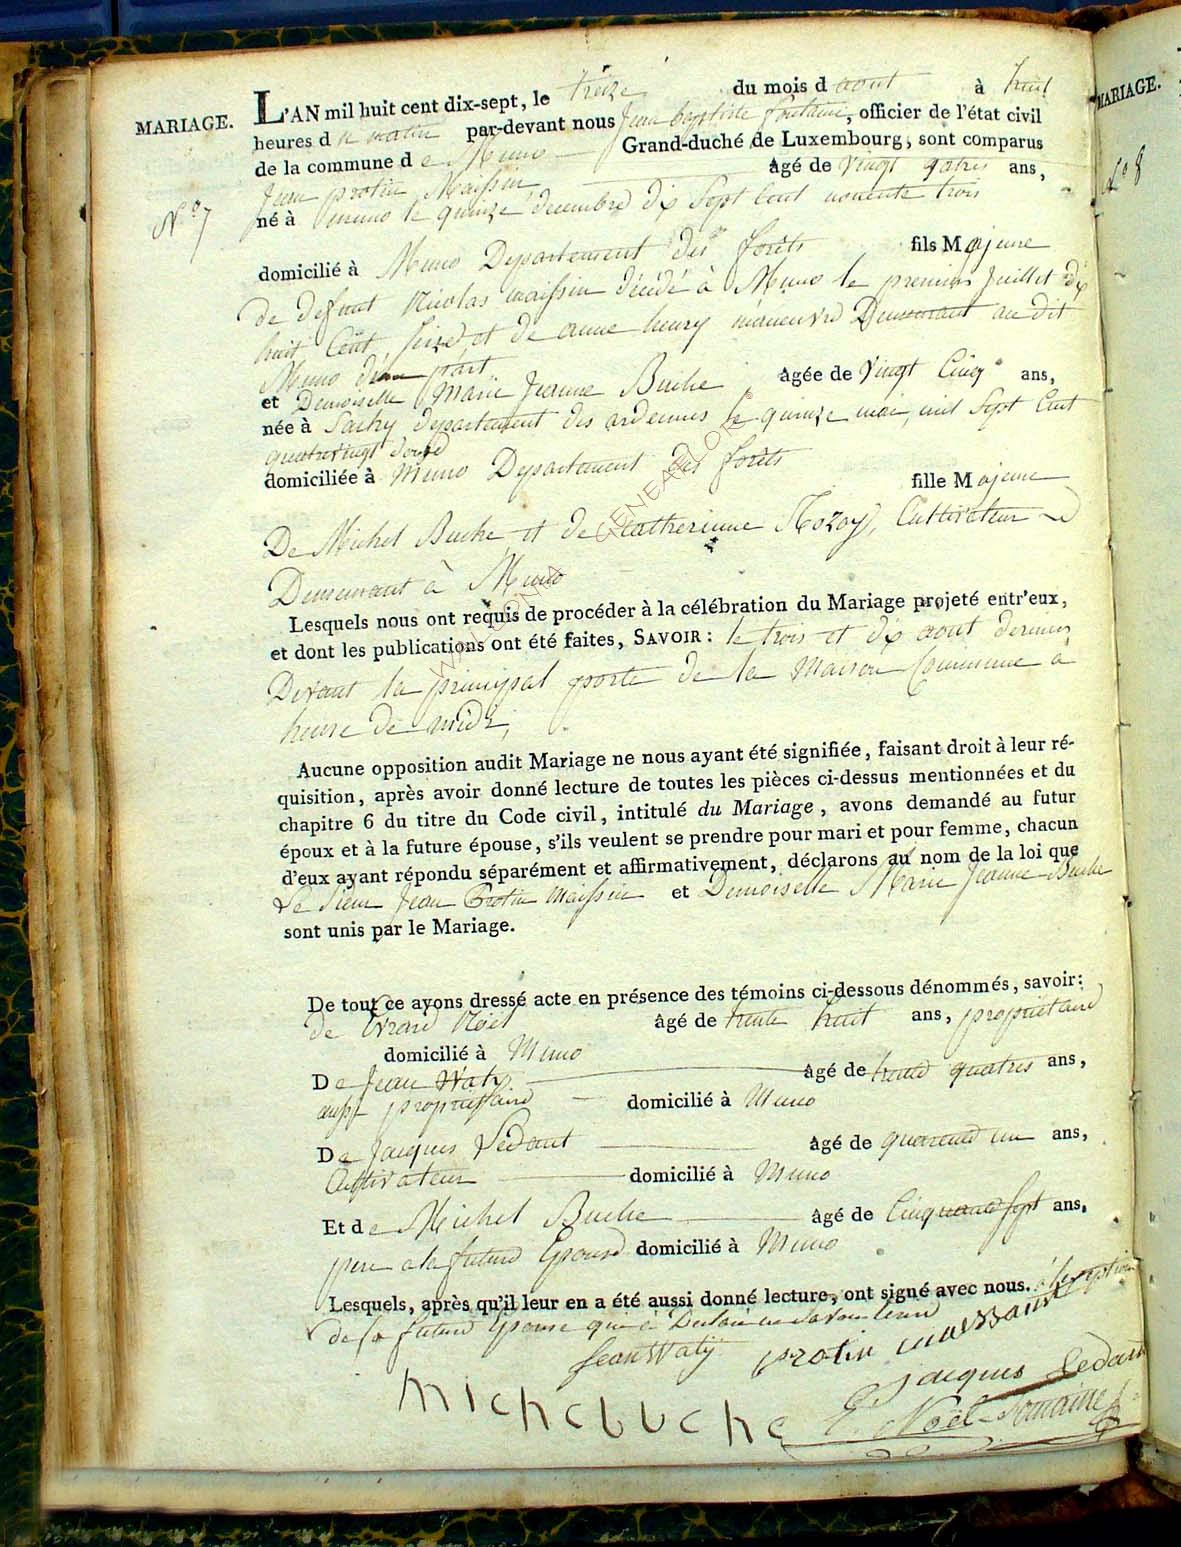 MARIAGE.
N° 7
L'AN mil huit cent dix-sept, le treize du mois d aout à huit
heures d u matin par-devant nous Jean baptiste fontaine, officier de l'état civil
de la commune d e Muno Grand-duché de Luxembourg, sont comparus
Jean protin Maissin âgé de vingt quatres ans,
né à muno le quinze decembre dix Sept Cent nonente trois
domicilié à Muno Departement des forêts fils Majeure
de defunt Nicolas maissin décédé à Muno le premier Juillet dix
huit Cent seize et de anne henry maneuvre Demeurant au dit
Muno d'une part.
et Demoiselle Marie Jeanne Buche âgée de Vingt Cinq ans,
née à Sachy departement des ardennes le quinze mai, mil Sept Cent
quatrevingt douze
domiciliée à Muno Departement des forêts
fille Majeure
De Michel Buche et de catherinne Rozoy, Cultivateur
Demeurant à Muno
Lesquels nous ont requis de procéder à la célébration du Mariage projeté entr'eux,
et dont les publications ont été faites, SAVOIR : le trois et dix aout dernier
Devant la principal porte de la Maison Commune à
heure de midi,
Aucune opposition audit Mariage ne nous ayant été signifiée, faisant droit à leur ré-
quisition, après avoir donné lecture de toutes les pièces ci-dessus mentionnées et du
chapitre 6 du titre du Code civil, intitulé du Mariage, avons demandé au futur
époux et à la future épouse, s'ils veulent se prendre pour mari et pour femme, chacun
d'eux ayant répondu séparément et affirmativement, déclarons au nom de la loi que
Le Sieur Jean Protin Maissin et Demoiselle Marie Jeanne Buche
sont unis par le Mariage.
De tout ce avons dressé acte en présence des témoins ci-dessous dénommés, savoir:
de Evrard Noël âgé de trente huit ans, propriétaire
domicilié à Muno
D e Jean Waty âgé de trente quatres ans,
aussi propriétaire domicilié à Muno
D e Jacques Ledant âgé de quarente un ans,
Cultivateur domicilié à Muno
Et d e Michel Buche âgé de Cinquante Sept ans,
pere a la future Epouse domicilié à Muno
Lesquels, après qu'il leur en a été aussi donné lecture, ont signé avec nous. à l'exception
de la future Epouse qui a Declaré ne Savoir
Jean Waty protin maissaint
Jacques Ledant
michebuche E. Noël fontaine
WALLONIA GENEALOR ©
MARIAGE.
N° 8